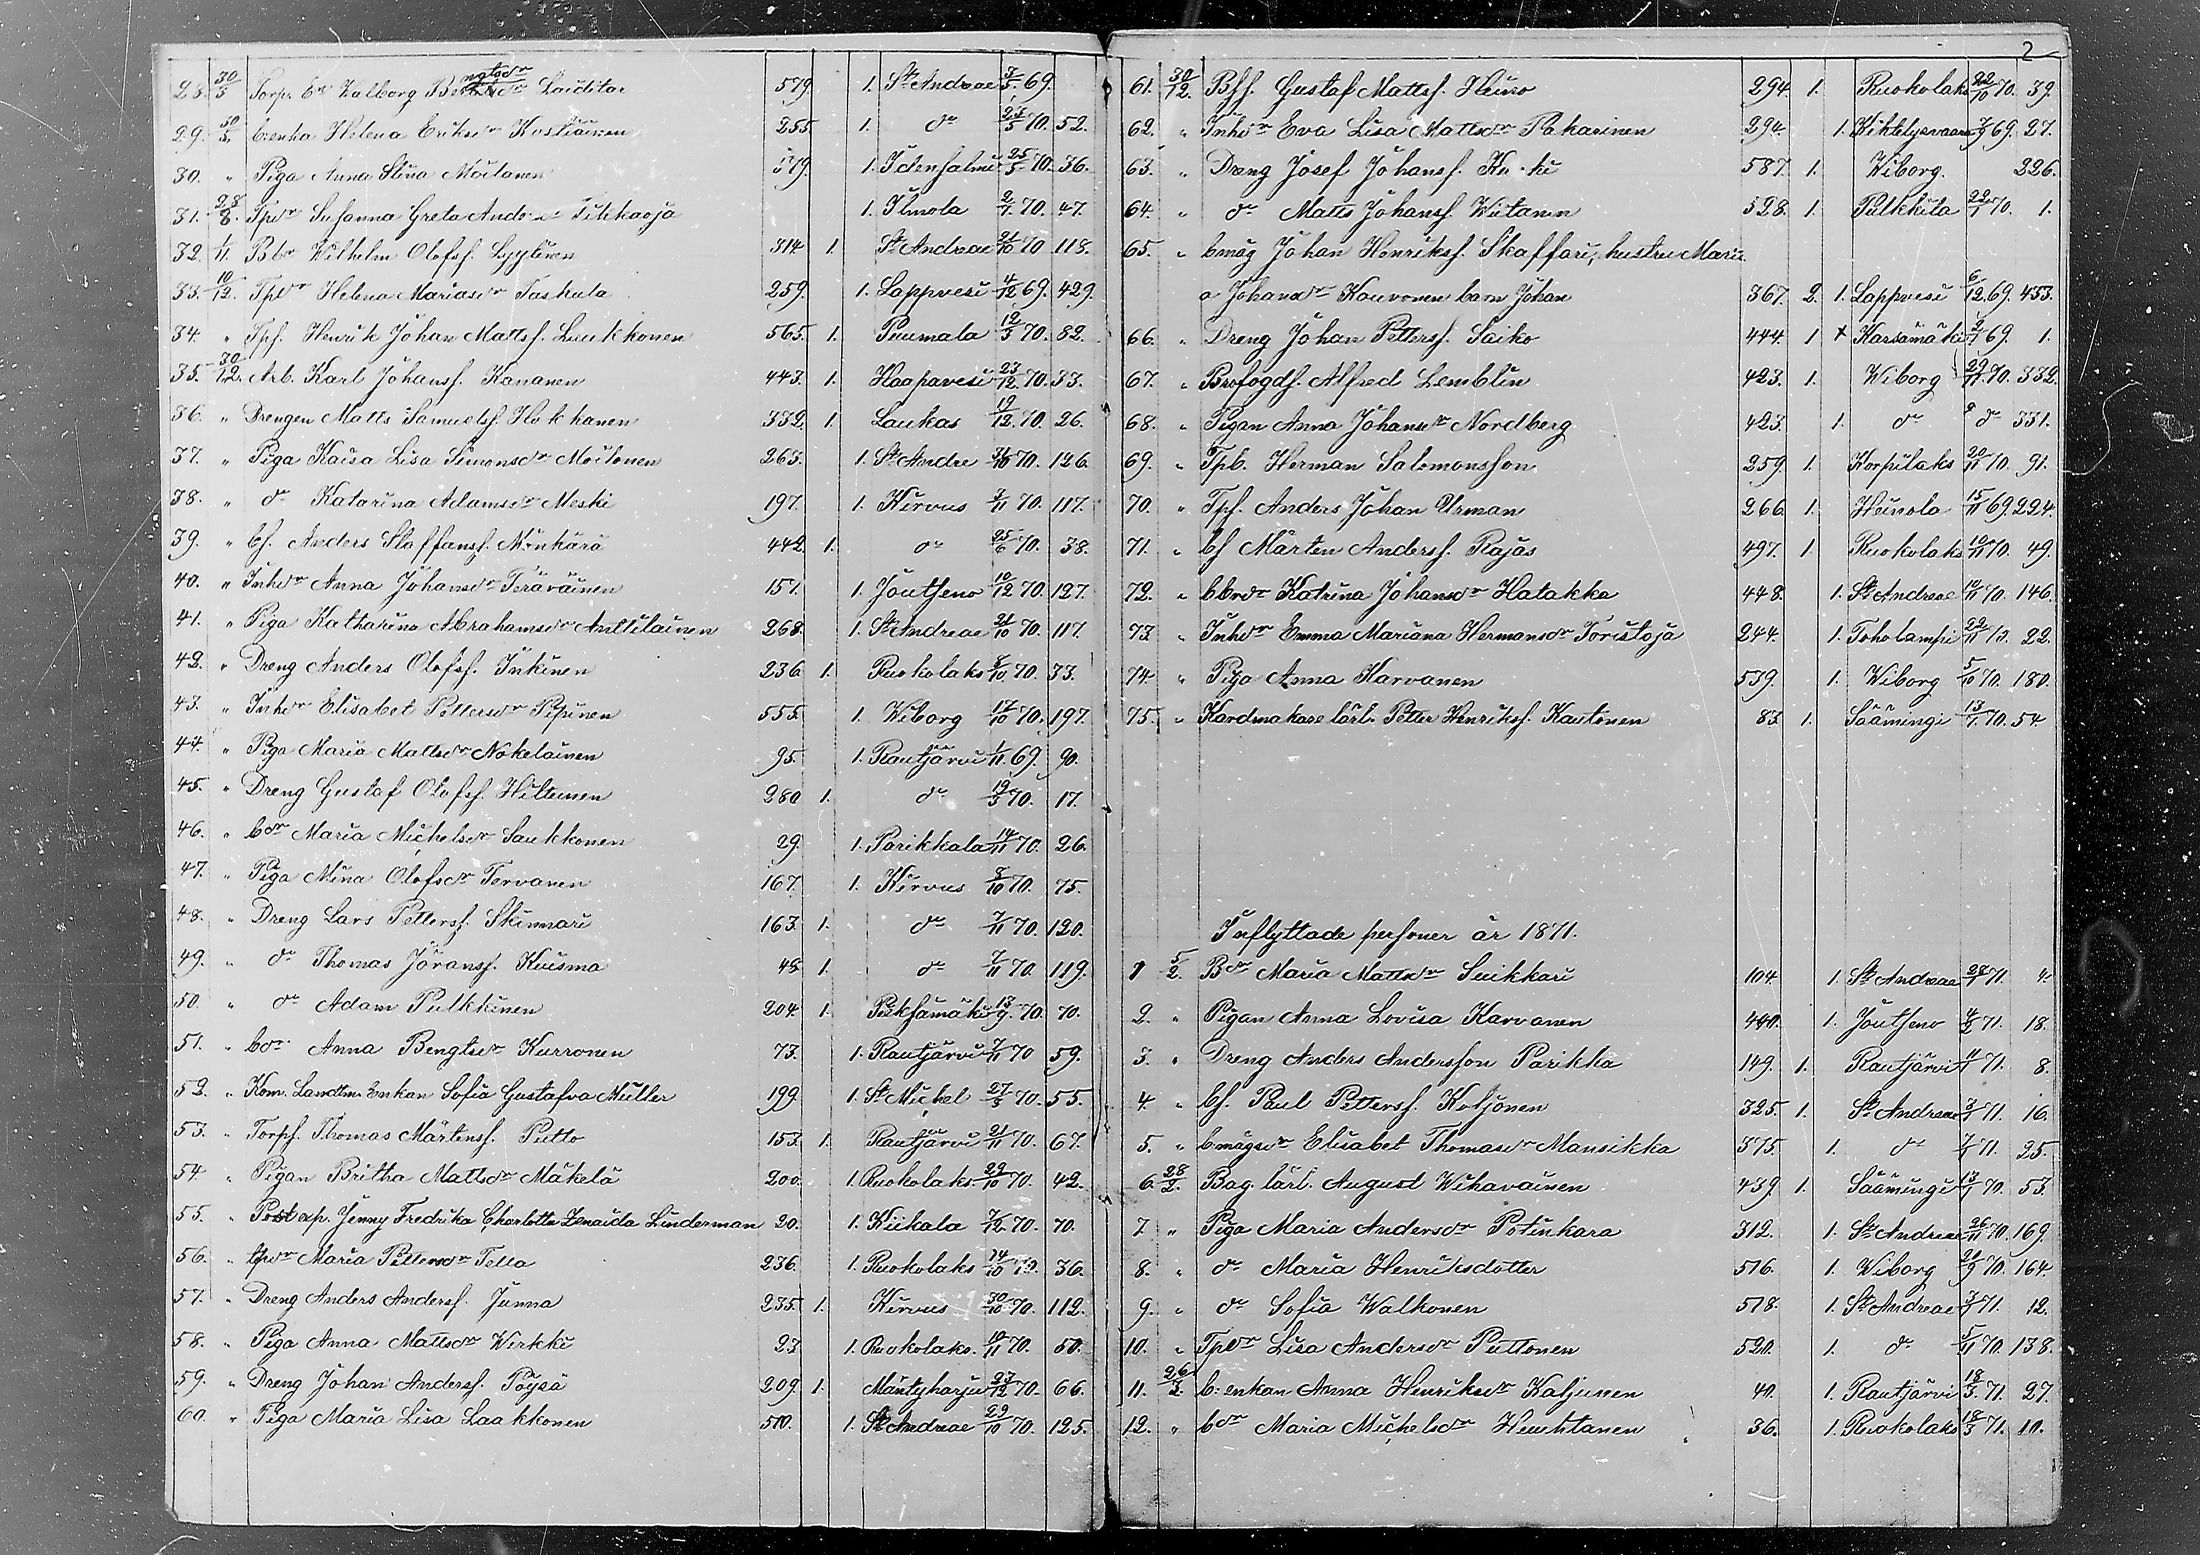 2
28. 30/5 Torp. Valborg Bengtsdr Lauditar 579 1. St Andreae 7/5 69.
29. 30/5. b:enka Helena Eriksdr Kostiainen 255 1. do 23/5 70. 52.
30. " Piga Anna Stina Moilanen 579. 1. Idensalmi 25/5 70. 36.
31. 28/8. Tpdr Susanna Greta Andr Pitkkaoja 1. Ilmola 2/7 70. 47.
32. 1/11. Wilhelm Olofss. Lyytinen 314 1 St Andreae 21/10 70 118.
33. 10/12. Tpdr Helena Mariasdr Taskula 259. 1. Lappvesi 4/12 69. 429.
34. " Tps. Henrik Johan Mattss. Luukkonen 565. 1. Puumala 12/5 70. 82.
35. 30/12. Arb. Karl Johanss. Kananen 443. 1. Haapavesi 23/12 70. 33.
36. " Drengen Matts Samuelss. Hokkanen 332. 1. Laukas 19/12. 70. 26.
37. " Piga Kaisa Lisa Simonsdr Moilonen 263. 1. St Andre 21/10 70. 126.
38. " do Katarina Adamsdr Meski 197. 1. Kirvus 7/11 70. 117.
39. " bs. Anders Staffanss. Minkärä 442. 1. do 25/6 70. 38.
40. " Inhdr Anna Johansdr Teräväinen 151. 1. Joutseno 10/12 70. 127.
41. " Piga Katharina Abrahamsdr Anttilainen 268. 1. St Andreae 21/10 70. 117.
42. " Dreng Anders Olofss. Inkinen 236 1. Ruokolaks 8/10. 70. 33.
43. " Inhdr Elisabet Pettersdr Pipinen 555. 1. Wiborg 17/10 70. 197.
44. " Piga Maria Mattsdr Nokelainen 95. 1. Rautjärvi 1/11 69. 90.
45. " Dreng Gustaf Olofss. Hiltunen 280 1. do 19/3 70. 17.
46. " bdr Maria Michelsdr Saukkonen 29. 1. Parikkala 14/11 70. 26.
47. " Piga Mina Olofsdr Tervanen 167. 1. Kirvus 8/10 70. 75.
48. " Dreng Lars Petterss. Skinnari 163. 1. do 7/11 70. 120.
49. " do Thomas Jöranss. Kuisma 48 1. do 7/11 70. 119.
50. " do Adam Pulkkinen 204. 1. Pieksämäki 13/9. 70. 70.
51. " bdr Anna Bengtsdr Kurronen 73. 1. Rautjärvi 7/11 70 59.
52. " Kom. Landtm. Enkan Sofia Gustafva Müller 199. 1. St Michel 27/5 70. 55.
53. " Torps. Thomas Mårtenss. Putto 153. 1. Rautjärvi 21/11 70. 67.
54. " Pigan Britha Mattsdr Mäkelä 200. 1. Ruokolaks 29/10 70. 42.
55. " Postexp. Jenny Fredrika Charlotta Zenaida Linderman 20. 1. Kiikala 7/12 70. 70.
56. " Maria Pettersdr Tella 236. 1. Ruokolaks 14/10 70. 36.
57. " Dreng Anders Anderss. Junna 235. 1. Kirvus 30/10 70. 112.
58. " Piga Anna Mattsdr Wirkki 23 1. Ruokolaks. 10/11 70. 50.
59. " Dreng Johan Anderss. Pöysä 209. 1. Mäntyharju 23/12 70. 66.
60. " Piga Maria Lisa Laakkonen 510. 1. St Andreae 29/10 70. 125.
61. 30/12. Gustaf Mattss. Heino 294. 1. Ruokolaks 22/10 70. 39.
62. " Inhdr Eva Lisa Mattsdr Pakarinen 294. 1. Kihtelysvaara 69. 27.
63. " Dreng Josef Johanss. 587. 1. Wiborg. 226.
64. " do Matts Johanss. Wiitanen 528. 1. Pulkkila 22/1 70. 1.
65. " bmåg Johan Henrikss. Skaffari, hustru Mari
a Johansdr Kauvonen barn Johan 367. 2. 1. Lappvesi 6/12. 69. 453.
66. " Dreng Johan Petterss. Saiko 444. 1 + Karsämäki 69. 1.
67. " Brofogds. Alfred Lemblin 423. 1. Wiborg 29/11. 70. 332.
68. " Pigan Anna Johansdr Nordberg 423. 1. do do 331.
69. " Tpb. Herman Salomonsson 259. 1. Korpilaks 20/11 70. 91.
70. " Tps. Anders Johan Urman 266. 1. Heinola 15/11 69. 224.
71. " bs Mårten Anderss. Rajas 497. 1. Ruokolaks 10/11 70. 49.
72. " Katrina Johansdr Hatakka 448. 1. St Andreae 10/11 70. 146.
73. " Inhdr Emma Mariana Hermansdr Toristoja 244. 1. Toholampi 22/11 70. 22.
74. " Piga Anna Karvanen 539. 1. Wiborg 5/10 70. 180.
75. " Kardmakare lärl. Petter Henrikss. Kautonen 83 1. Säämingi 13/1. 70. 54
Inflyttade personer år 1871.
1 5/2. Bdr Maria Mattsdr Suikkari 104. 1. St Andreae 28/1 71. 4.
2. " Pigan Anna Lovisa Karvanen 440. 1. Joutseno 4/2 71. 18.
3. " Dreng Anders Andersson Parikka 149. 1. Rautjärvi 71. 8.
4. " bs. Paul Petterss. Koljonen 325. 1. St Andreae 71. 16.
5. " bmågsdr Elisabet Thomasdr Mansikka 375. 1. do 71. 25.
6. 28/2. Bag. lärl. August Wikaväinen 439. 1. Säämingi 13/1 70. 53.
7 " Piga Maria Andersdr Potinkara 312. 1. St Andreae 26/11 70. 169.
8. " do Maria Henriksdotter 576. 1. Wiborg 21/9 70. 164.
9. " do Sofia Walkonen 578. 1. St Andreae 71. 12.
10. " Tpdr Lisa Andersdr Puttonen 520. 1. do 5/11 70. 138.
11. 26/3. b:enkan Anna Henriksdr Kaljunen 40. 1. Rautjärvi 18/3. 71. 27.
12. " bdr Maria Michelsdr Huuhtanen 36. 1. Ruokolaks 18/3 71. 10.